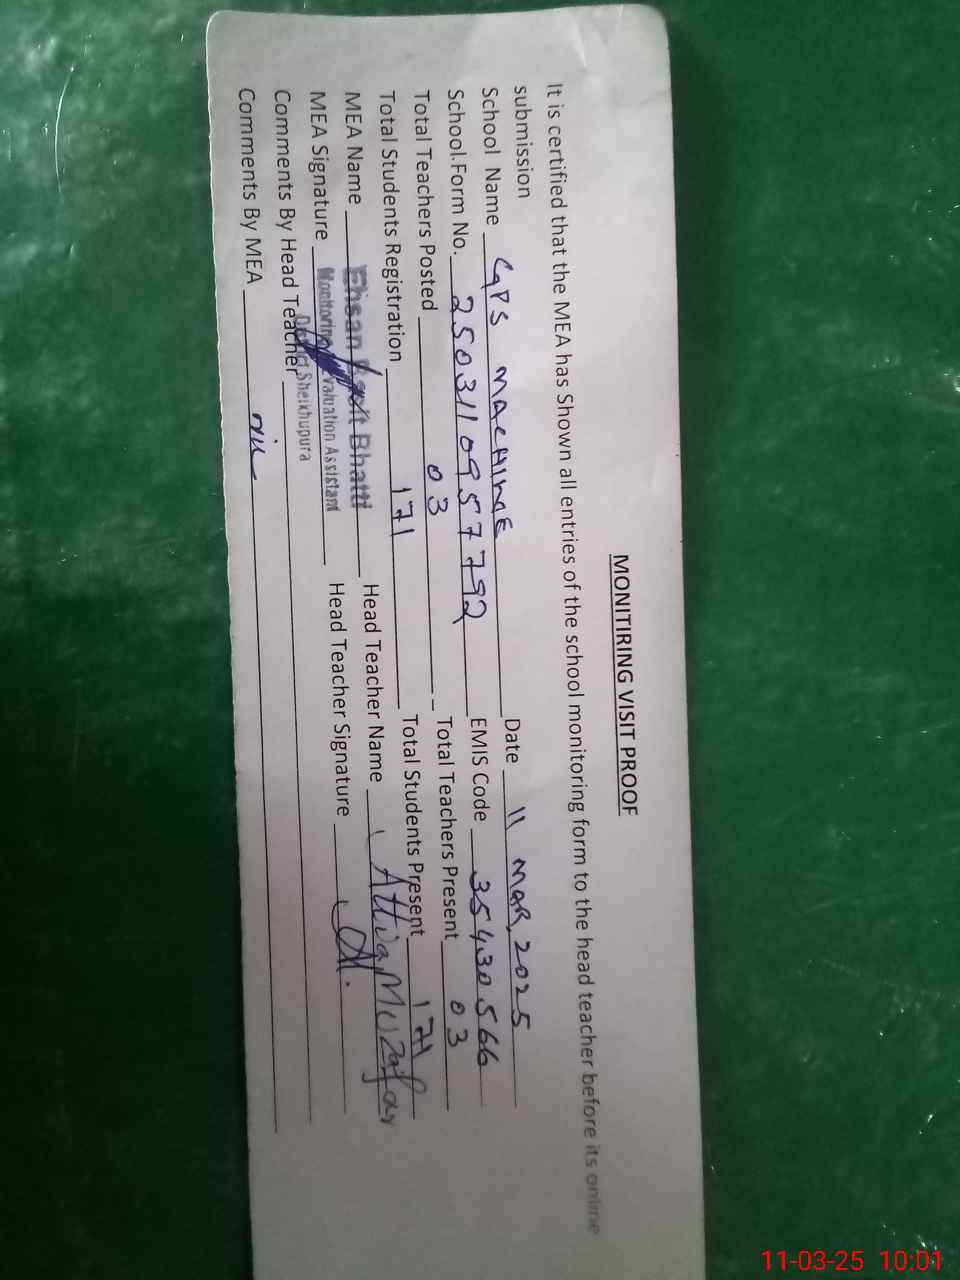 MONITIRING VISIT PROOF
It is certified that the MEA has Shown all entries of the school monitoring form to the head teacher before its online
submission
School Name GPS MACHINE Date 11 MAR, 2025
School Form No. 250311095 7792 EMIS Code 35430566
Total Teachers Posted 03 Total Teachers Present 03
Total Students Registration 171 Total Students Present 171
MEA Name Ehsan Bhatti Head Teacher Name Attiqa Muzaffar
MEA Signature Monitoring Evaluation Assistant Head Teacher Signature
District Sheikhupura
Comments By Head Teacher
Comments By MEA nil
11-03-25 10:01